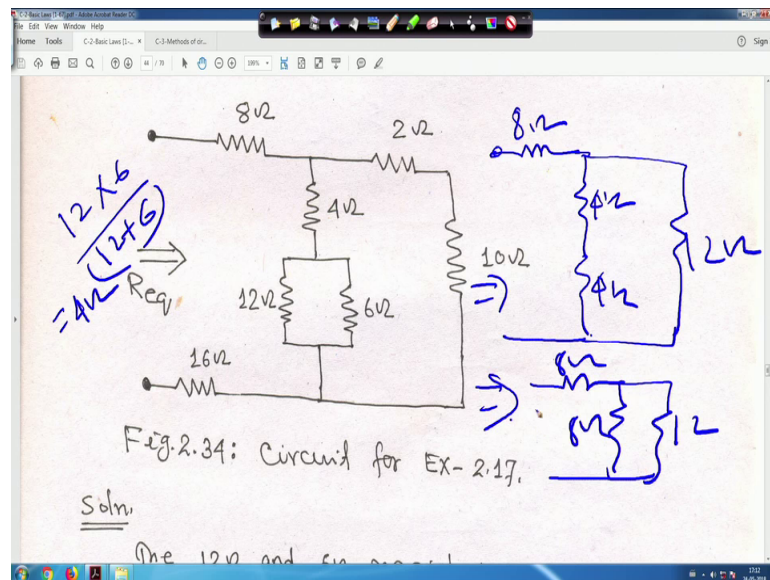 C-2-Basic Laws [1-67].pdf - Adobe Acrobat Reader DC
File Edit View Window Help
Home Tools C-2-Basic Laws [1-... × C-3-Methods of cir... Sign
44 / 70
8Ω
2Ω
4Ω
12Ω
6Ω
10Ω
16Ω
Req.
12 × 6
(12+6)
= 4Ω
8Ω
4Ω
4Ω
12Ω
8Ω
8Ω
12
Fig. 2.34: Circuit for EX-2.17.
Soln.
The 12Ω and 6Ω
17:12